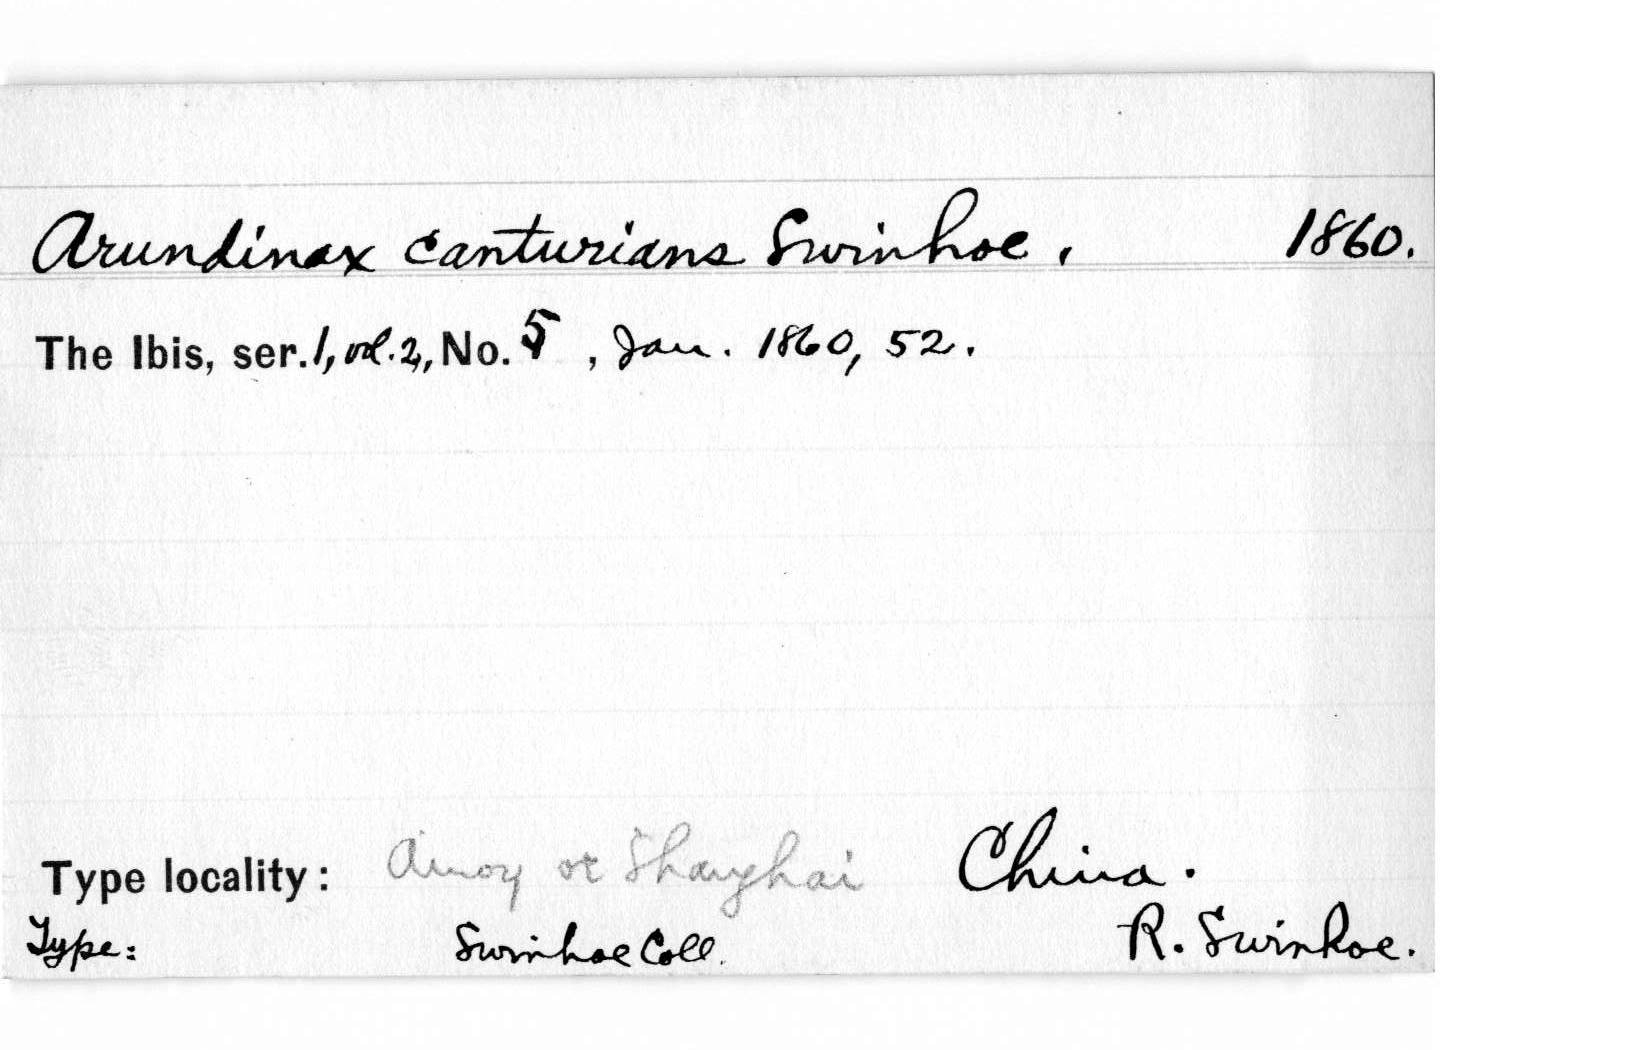 Arundinax canturians Swinhoe. 1860.
The Ibis, ser. 1, vol. 2, No. 5, Jan. 1860, 52.
Type locality: Amoy or Shanghai China.
Type: Swinhoe Coll. R. Swinhoe.